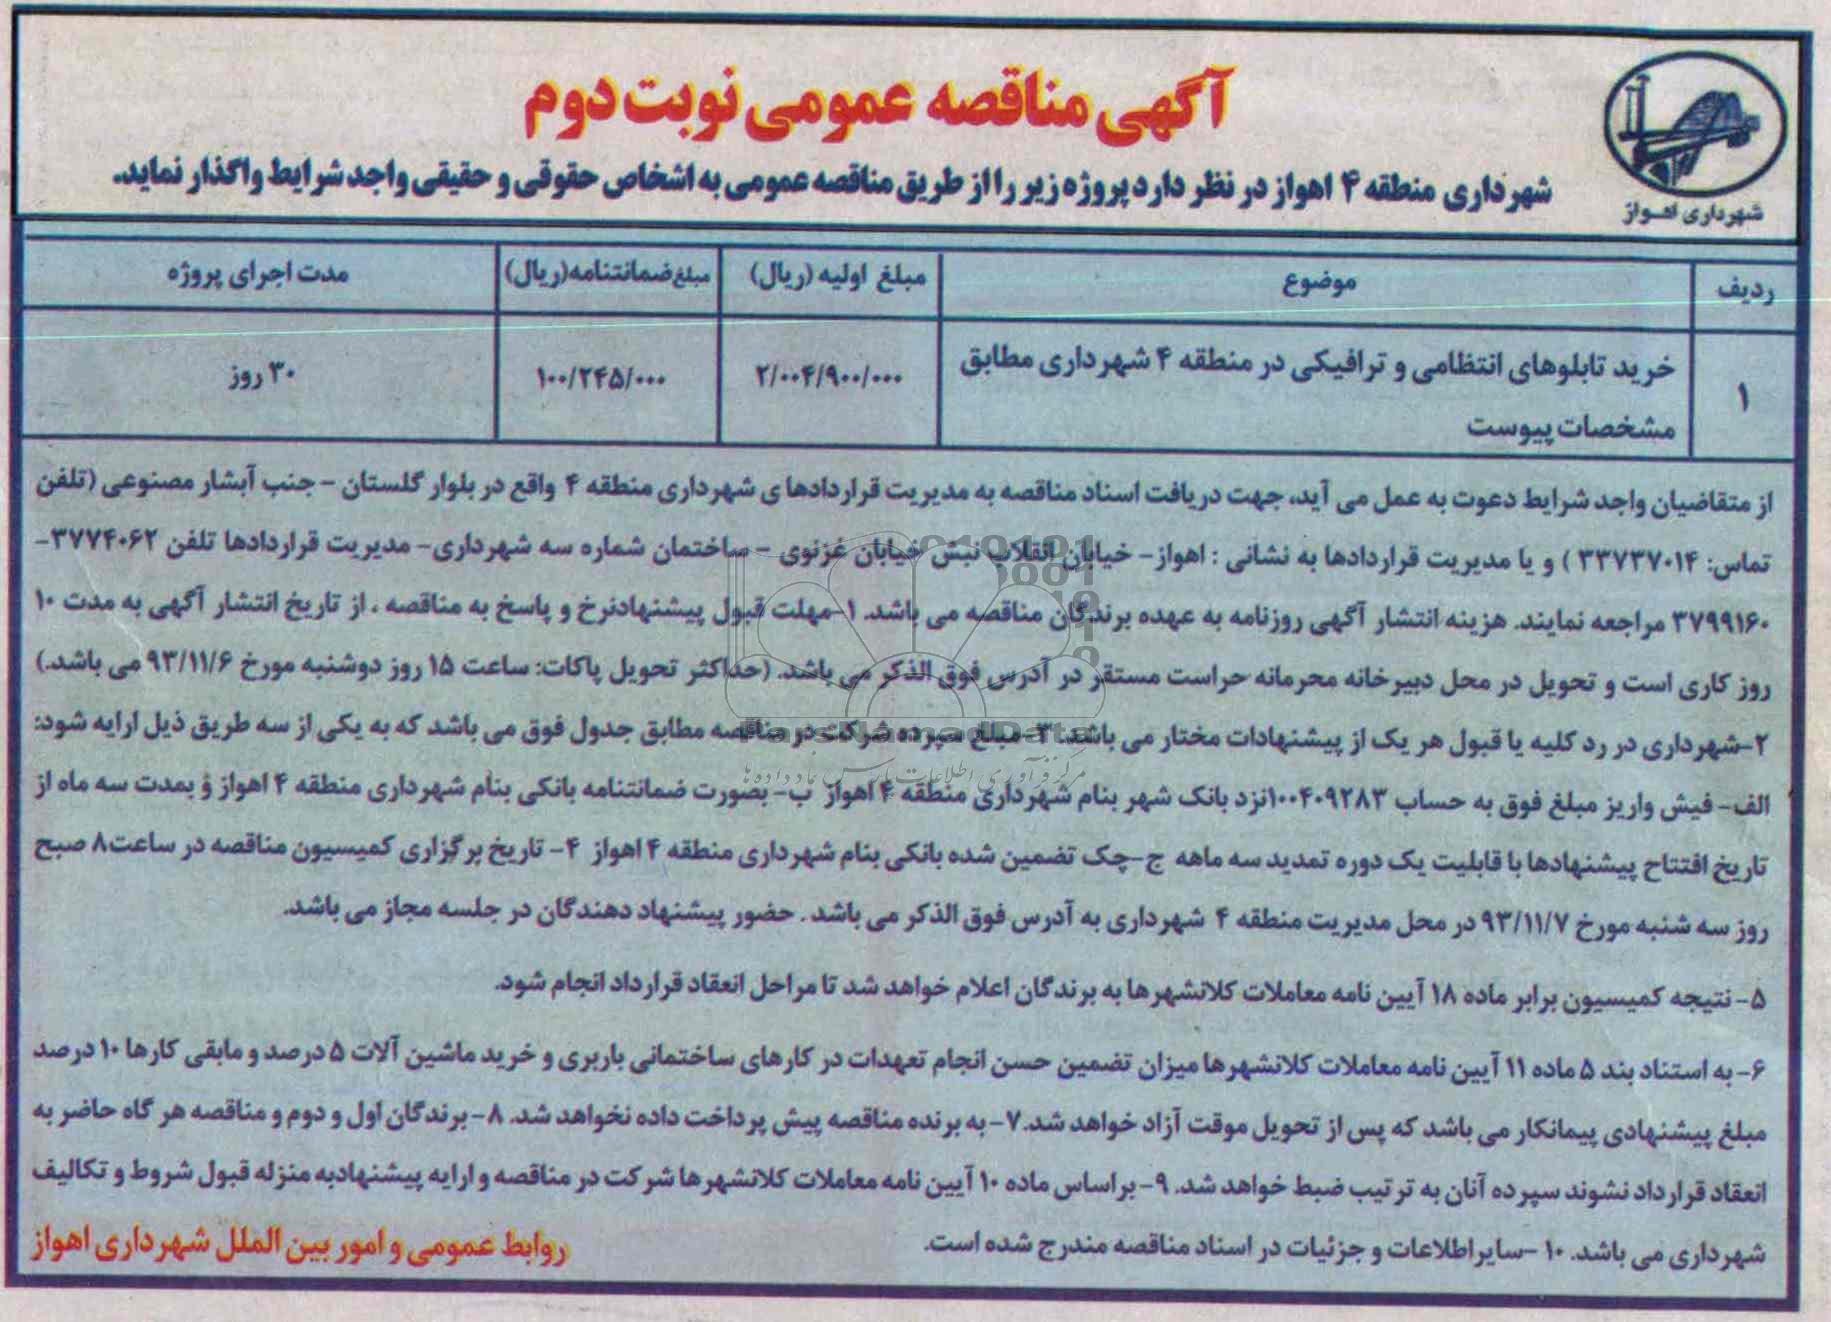 آگهی مناقصه عمومی نوبت دوم
شهرداری منطقه ۴ اهواز در نظر دارد پروژه زیر را از طریق مناقصه عمومی به اشخاص حقوقی و حقیقی واجد شرایط واگذار نماید.
شهرداری اهواز
ردیف موضوع مبلغ اولیه (ریال) مبلغ ضمانتنامه(ریال) مدت اجرای پروژه
۱ خرید تابلوهای انتظامی و ترافیکی در منطقه ۴ شهرداری مطابق ۲/۰۰۴/۹۰۰/۰۰۰ ۱۰۰/۲۴۵/۰۰۰ ۳۰ روز
مشخصات پیوست
از متقاضیان واجد شرایط دعوت به عمل می آید، جهت دریافت اسناد مناقصه به مدیریت قراردادها ی شهرداری منطقه ۴ واقع در بلوار گلستان - جنب آبشار مصنوعی (تلفن
تماس: ۳۳۷۳۷۰۱۴ ) و یا مدیریت قراردادها به نشانی : اهواز- خیابان انقلاب نبش خیابان غزنوی - ساختمان شماره سه شهرداری- مدیریت قراردادها تلفن ۳۷۷۴۰۶۲-
۳۷۹۹۱۶۰ مراجعه نمایند. هزینه انتشار آگهی روزنامه به عهده برندگان مناقصه می باشد. ۱-مهلت قبول پیشنهادنرخ و پاسخ به مناقصه ، از تاریخ انتشار آگهی به مدت ۱۰
روز کاری است و تحویل در محل دبیرخانه محرمانه حراست مستقر در آدرس فوق الذکر می باشد. (حداکثر تحویل پاکات: ساعت ۱۵ روز دوشنبه مورخ ۹۳/۱۱/۶ می باشد.)
۲-شهرداری در رد کلیه یا قبول هر یک از پیشنهادات مختار می باشد: ۳-مبلغ سپرده شرکت در مناقصه مطابق جدول فوق می باشد که به یکی از سه طریق ذیل ارایه شود:
الف- فیش واریز مبلغ فوق به حساب ۱۰۰۴۰۹۲۸۳نزد بانک شهر بنام شهرداری منطقه ۴ اهواز ب- بصورت ضمانتنامه بانکی بنام شهرداری منطقه ۴ اهواز و بمدت سه ماه از
تاریخ افتتاح پیشنهادها با قابلیت یک دوره تمدید سه ماهه ج-چک تضمین شده بانکی بنام شهرداری منطقه ۴ اهواز ۴- تاریخ برگزاری کمیسیون مناقصه در ساعت۸ صبح
روز سه شنبه مورخ ۹۳/۱۱/۷ در محل مدیریت منطقه ۴ شهرداری به آدرس فوق الذکر می باشد . حضور پیشنهاد دهندگان در جلسه مجاز می باشد.
۵- نتیجه کمیسیون برابر ماده ۱۸ آیین نامه معاملات کلانشهرها به برندگان اعلام خواهد شد تا مراحل انعقاد قرارداد انجام شود.
۶- به استناد بند ۵ ماده ۱۱ آیین نامه معاملات کلانشهرها میزان تضمین حسن انجام تعهدات در کارهای ساختمانی باربری و خرید ماشین آلات ۵ درصد و مابقی کارها ۱۰ درصد
مبلغ پیشنهادی پیمانکار می باشد که پس از تحویل موقت آزاد خواهد شد.۷- به برنده مناقصه پیش پرداخت داده نخواهد شد. ۸- برندگان اول و دوم و مناقصه هر گاه حاضر به
انعقاد قرارداد نشوند سپرده آنان به ترتیب ضبط خواهد شد. ۹- براساس ماده ۱۰ آیین نامه معاملات کلانشهرها شرکت در مناقصه و ارایه پیشنهادبه منزله قبول شروط و تکالیف
شهرداری می باشد. ۱۰ -سایراطلاعات و جزئیات در اسناد مناقصه مندرج شده است.
روابط عمومی و امور بین الملل شهرداری اهواز
ParsNamadData
مرکز فرآوری اطلاعات پارس نماد داده ها